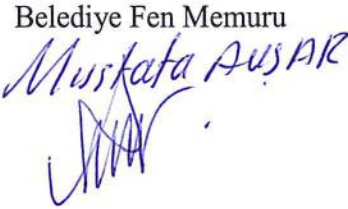 Belediye Fen Memuru
Mustafa AVŞAR